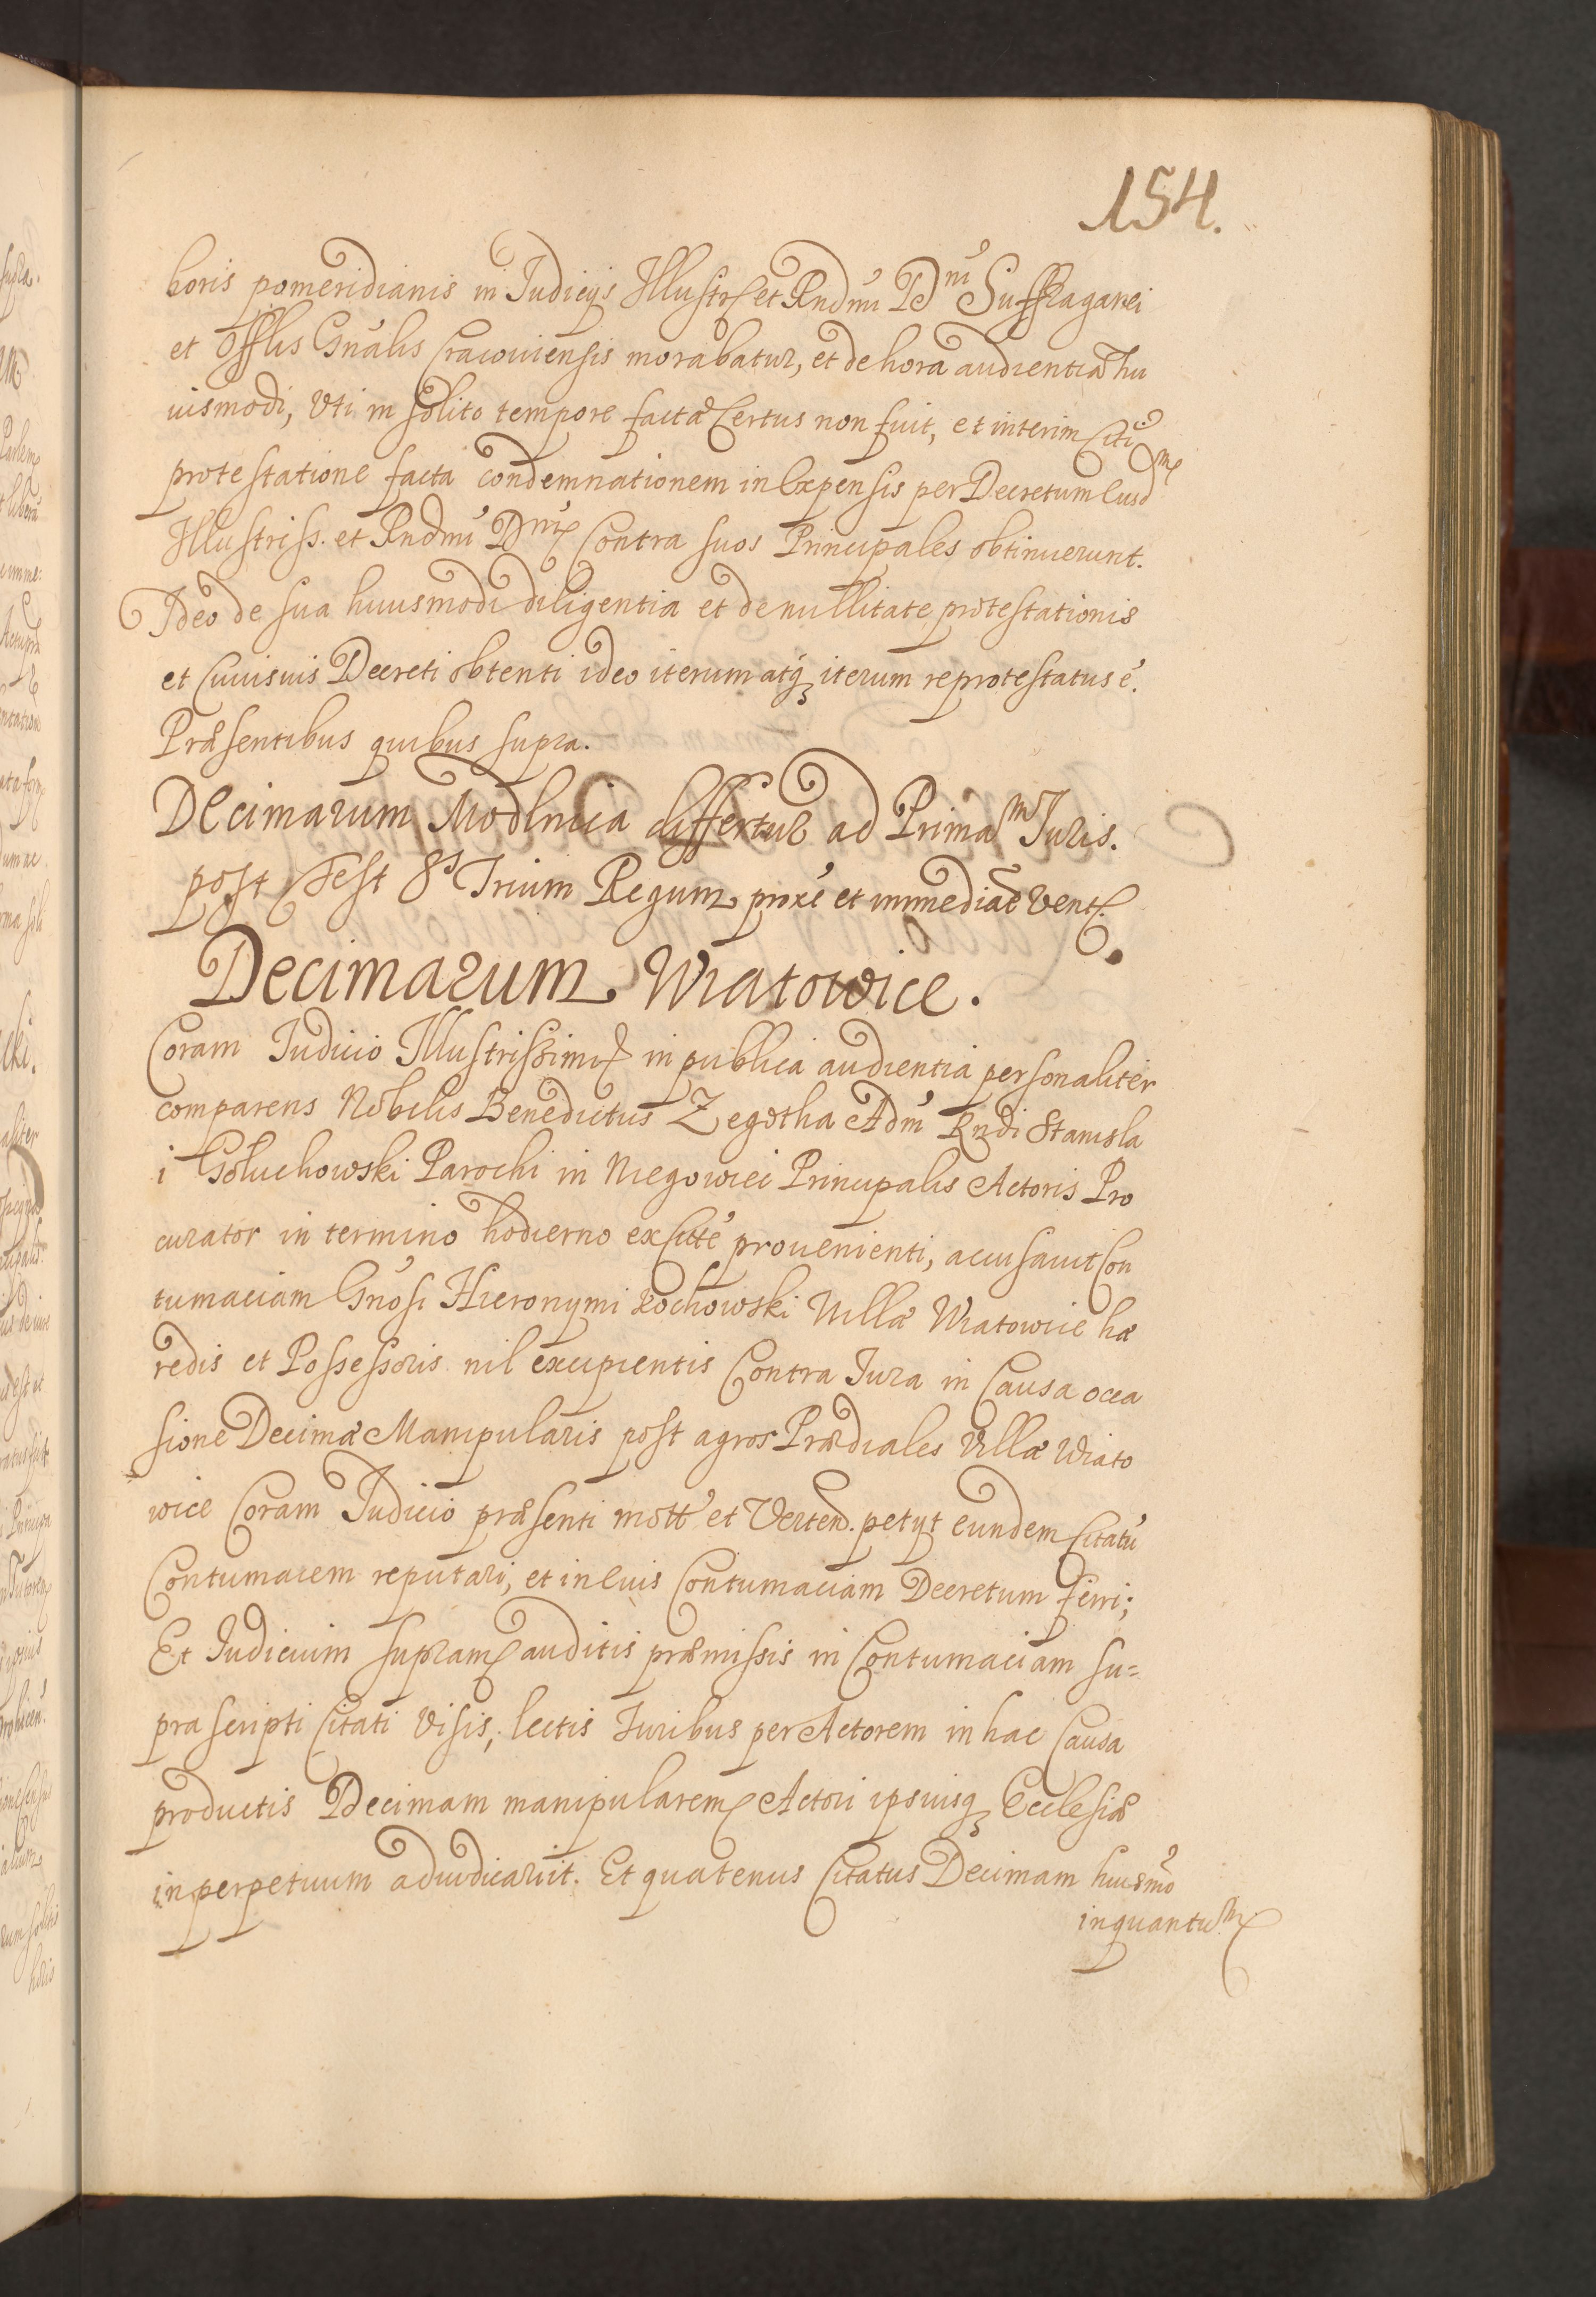 154.
horis pomeridianis in Judicijs Illustr et Rndmi Dni Suffraganei
et Offlis Gnalis Cracouiensis morabatur, et de hora audentiæ hu
iusmodi, Vti in solito tempore factæ Certus non fuit, et interim Citi
protestatione facta condemnationem in Expensis per Decretum Eusdm
Illustriss. et Rndmi Dni Contra suos Principales obtinuerunt.
Ideo de sua huiusmodi diligentia et de nullitate protestationis
et Cuiusuis Decreti obtenti ideo iterum atq iterum reprotestatus é.
Præsentibus quibus supra.
Decimarum Modlnica differtur ad Primam Juris.
post Fest 8s Trium Regum proxé et immediaté Vent.
Decimarum Wiatowice.
Coram Judicio Illustrissimi in publica audientia personaliter
comparens Nobilis Benedictus Zegotha Adm Rndi Stanisla
i Goluchowski Parochi in Niegowici Principalis Actoris Pro
curator in termino hodierno ex Citté prouenienti, accusauit Con
tumaciam Gnosi Hieronymi Kochowski Villæ Wiatowice hæ
redis et Possessoris nil excipientis Contra Jura in Causa occa
sione Decimæ Manipularis post agros Prædiales Villæ Wiato
wice Coram Judicio præsenti mott et Verten. petyt eundem Citatú
Contumacem reputari, et in Euis Contumaciam Decretum ferri;
Et Judicium supram auditis præmissis in Contumaciam su=
prascripti Citati Visis, lectis Juribus per Actorem in hac Causa
productis Decimam manipularem Actori ipsiusq Ecclesiæ
in perpetuum adiudicauit. Et quatenus Citatus Decimam huusmo
inquantum